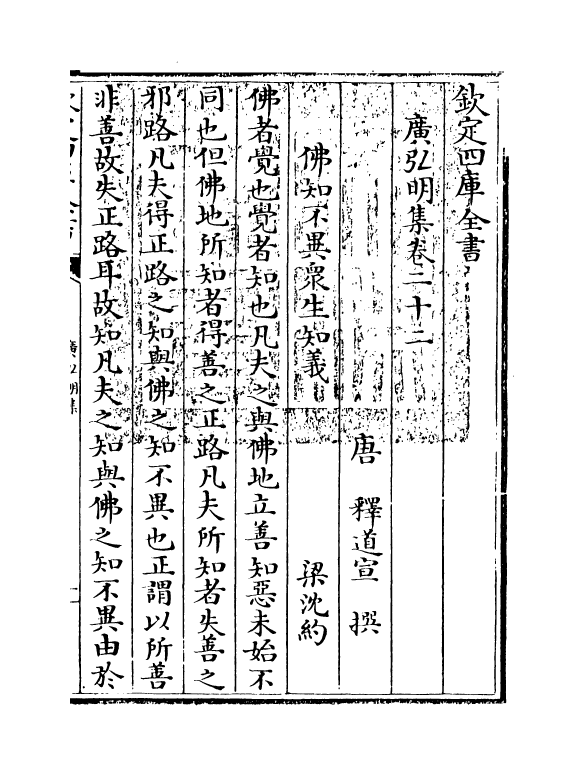 欽定四庫全書
廣弘明集卷二十二
唐 釋道宣 撰
佛知不異衆生知義 梁沈約
佛者覺也覺者知也凡夫之與佛地立善知惡未始不
同也但佛地所知者得善之正路凡夫所知者失善之
邪路凡夫得正路之知與佛之知不異也正謂以所善
非善故失正路耳故知凡夫之知與佛之知不異由於
廣弘明集